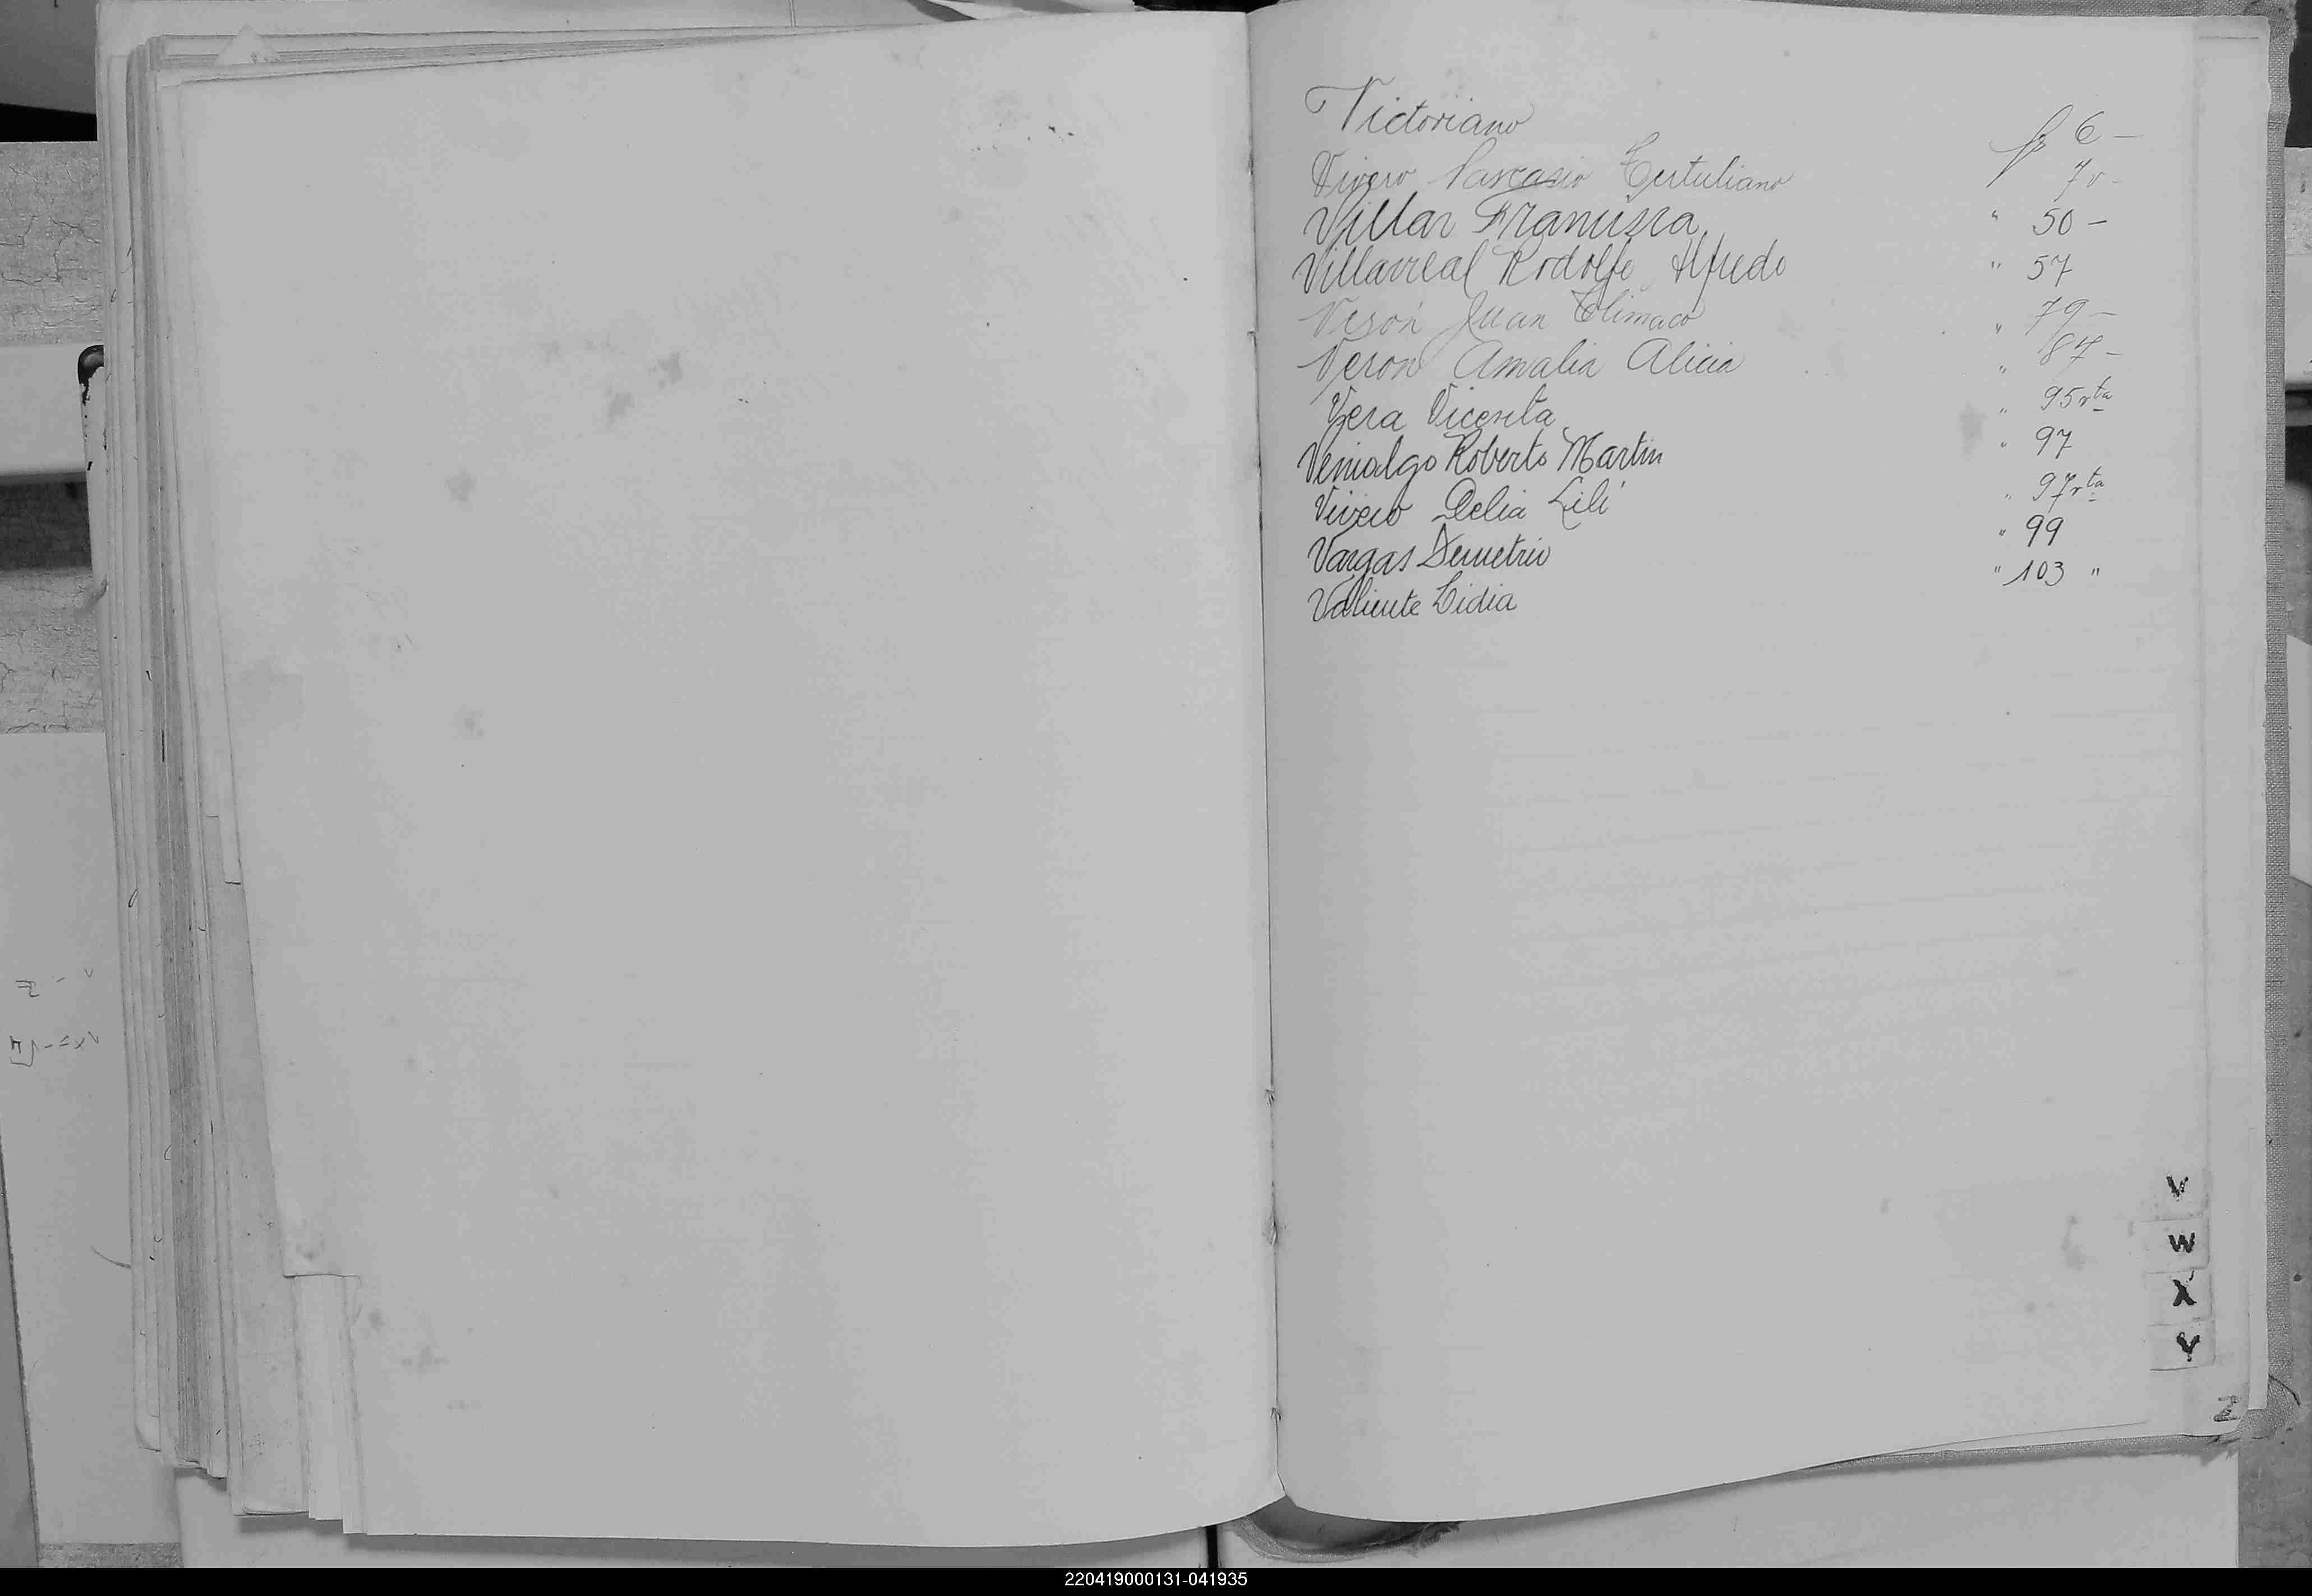 Victoriano fs 6 -
Vivero Pascasio Tertuliano 7v -
Villar Francisca " 50 -
Villarreal Rodolfo Alfredo " 57
Verón Juan Climaco " 79 -
Veron Amalia Alicia " 87 -
Vera Vicenta " 95 vta
Venialgo Roberto Martin " 97
Vivero Delia Lili " 97 vta
Vargas Demetrio " 99
Valiente Lidia " 103 "
V
W
X
Y
Z
220419000131-041935